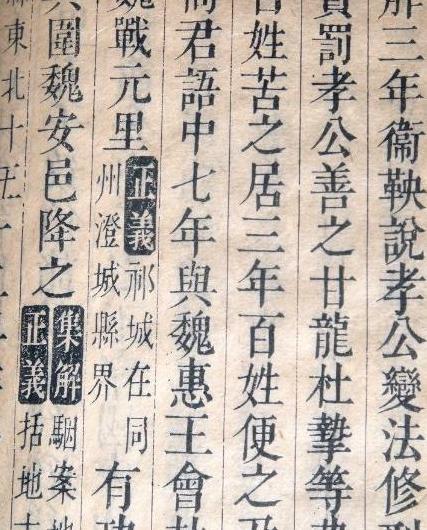 胙三年衛鞅說孝公變法修刑
賞罰孝公善之甘龍杜摯等
百姓苦之居三年百姓便之乃
商君語中七年與魏惠王會杜
魏戰元里
正義祁城在同
州澄城縣界
有功
兵圍魏安邑降之
集解駰案地
正義括地
東北十五